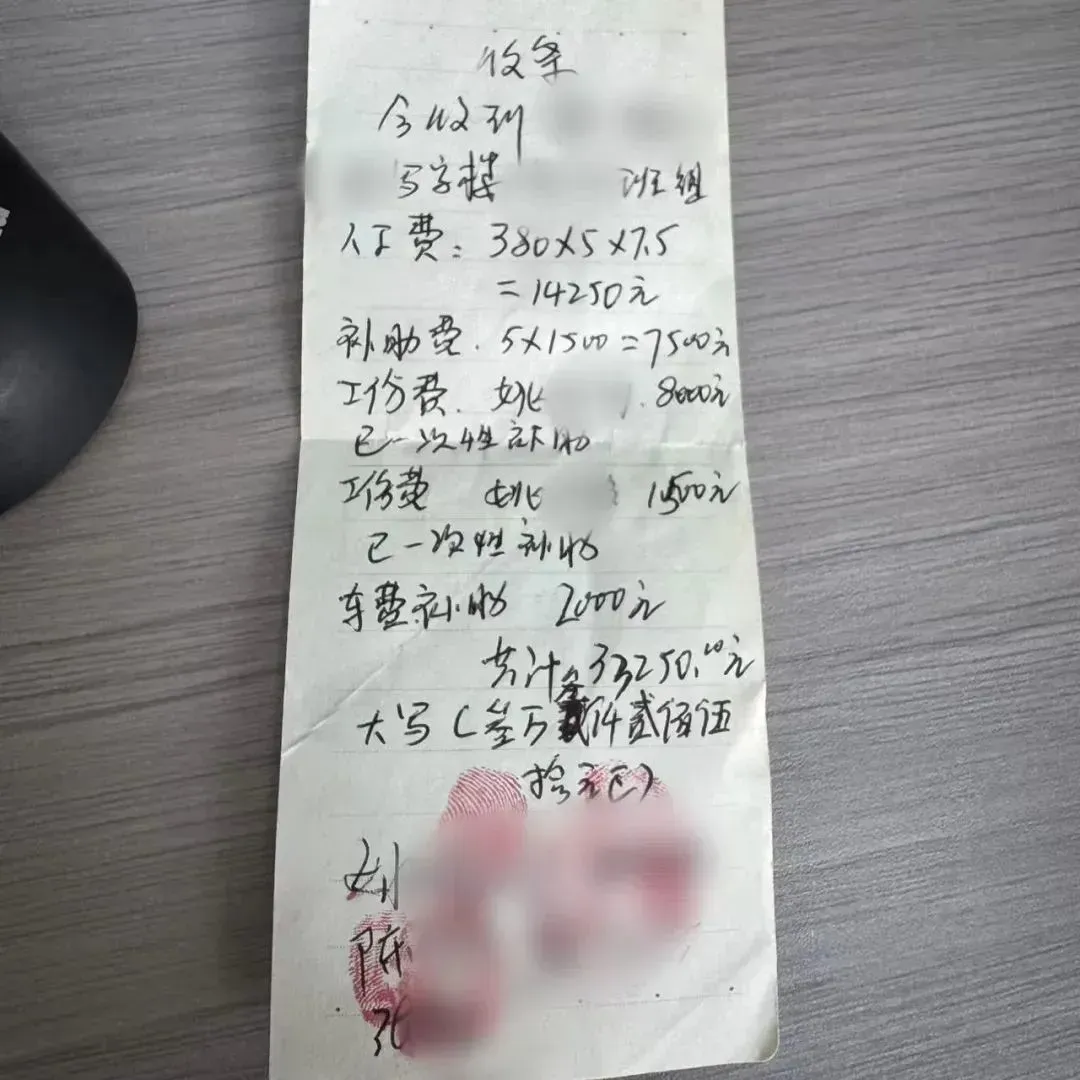 收条
今收到
写字楼 班组
人工费：380×5×7.5
=14250元
补助费．5×1500=7500元
工份费．姚 ．8000元
已一次性补助
工份费 姚 1500元
已一次性补助
车费补助 2000元
共计 33250.00元
大写（叁万叁仟贰佰伍
拾元正）
刘
陈